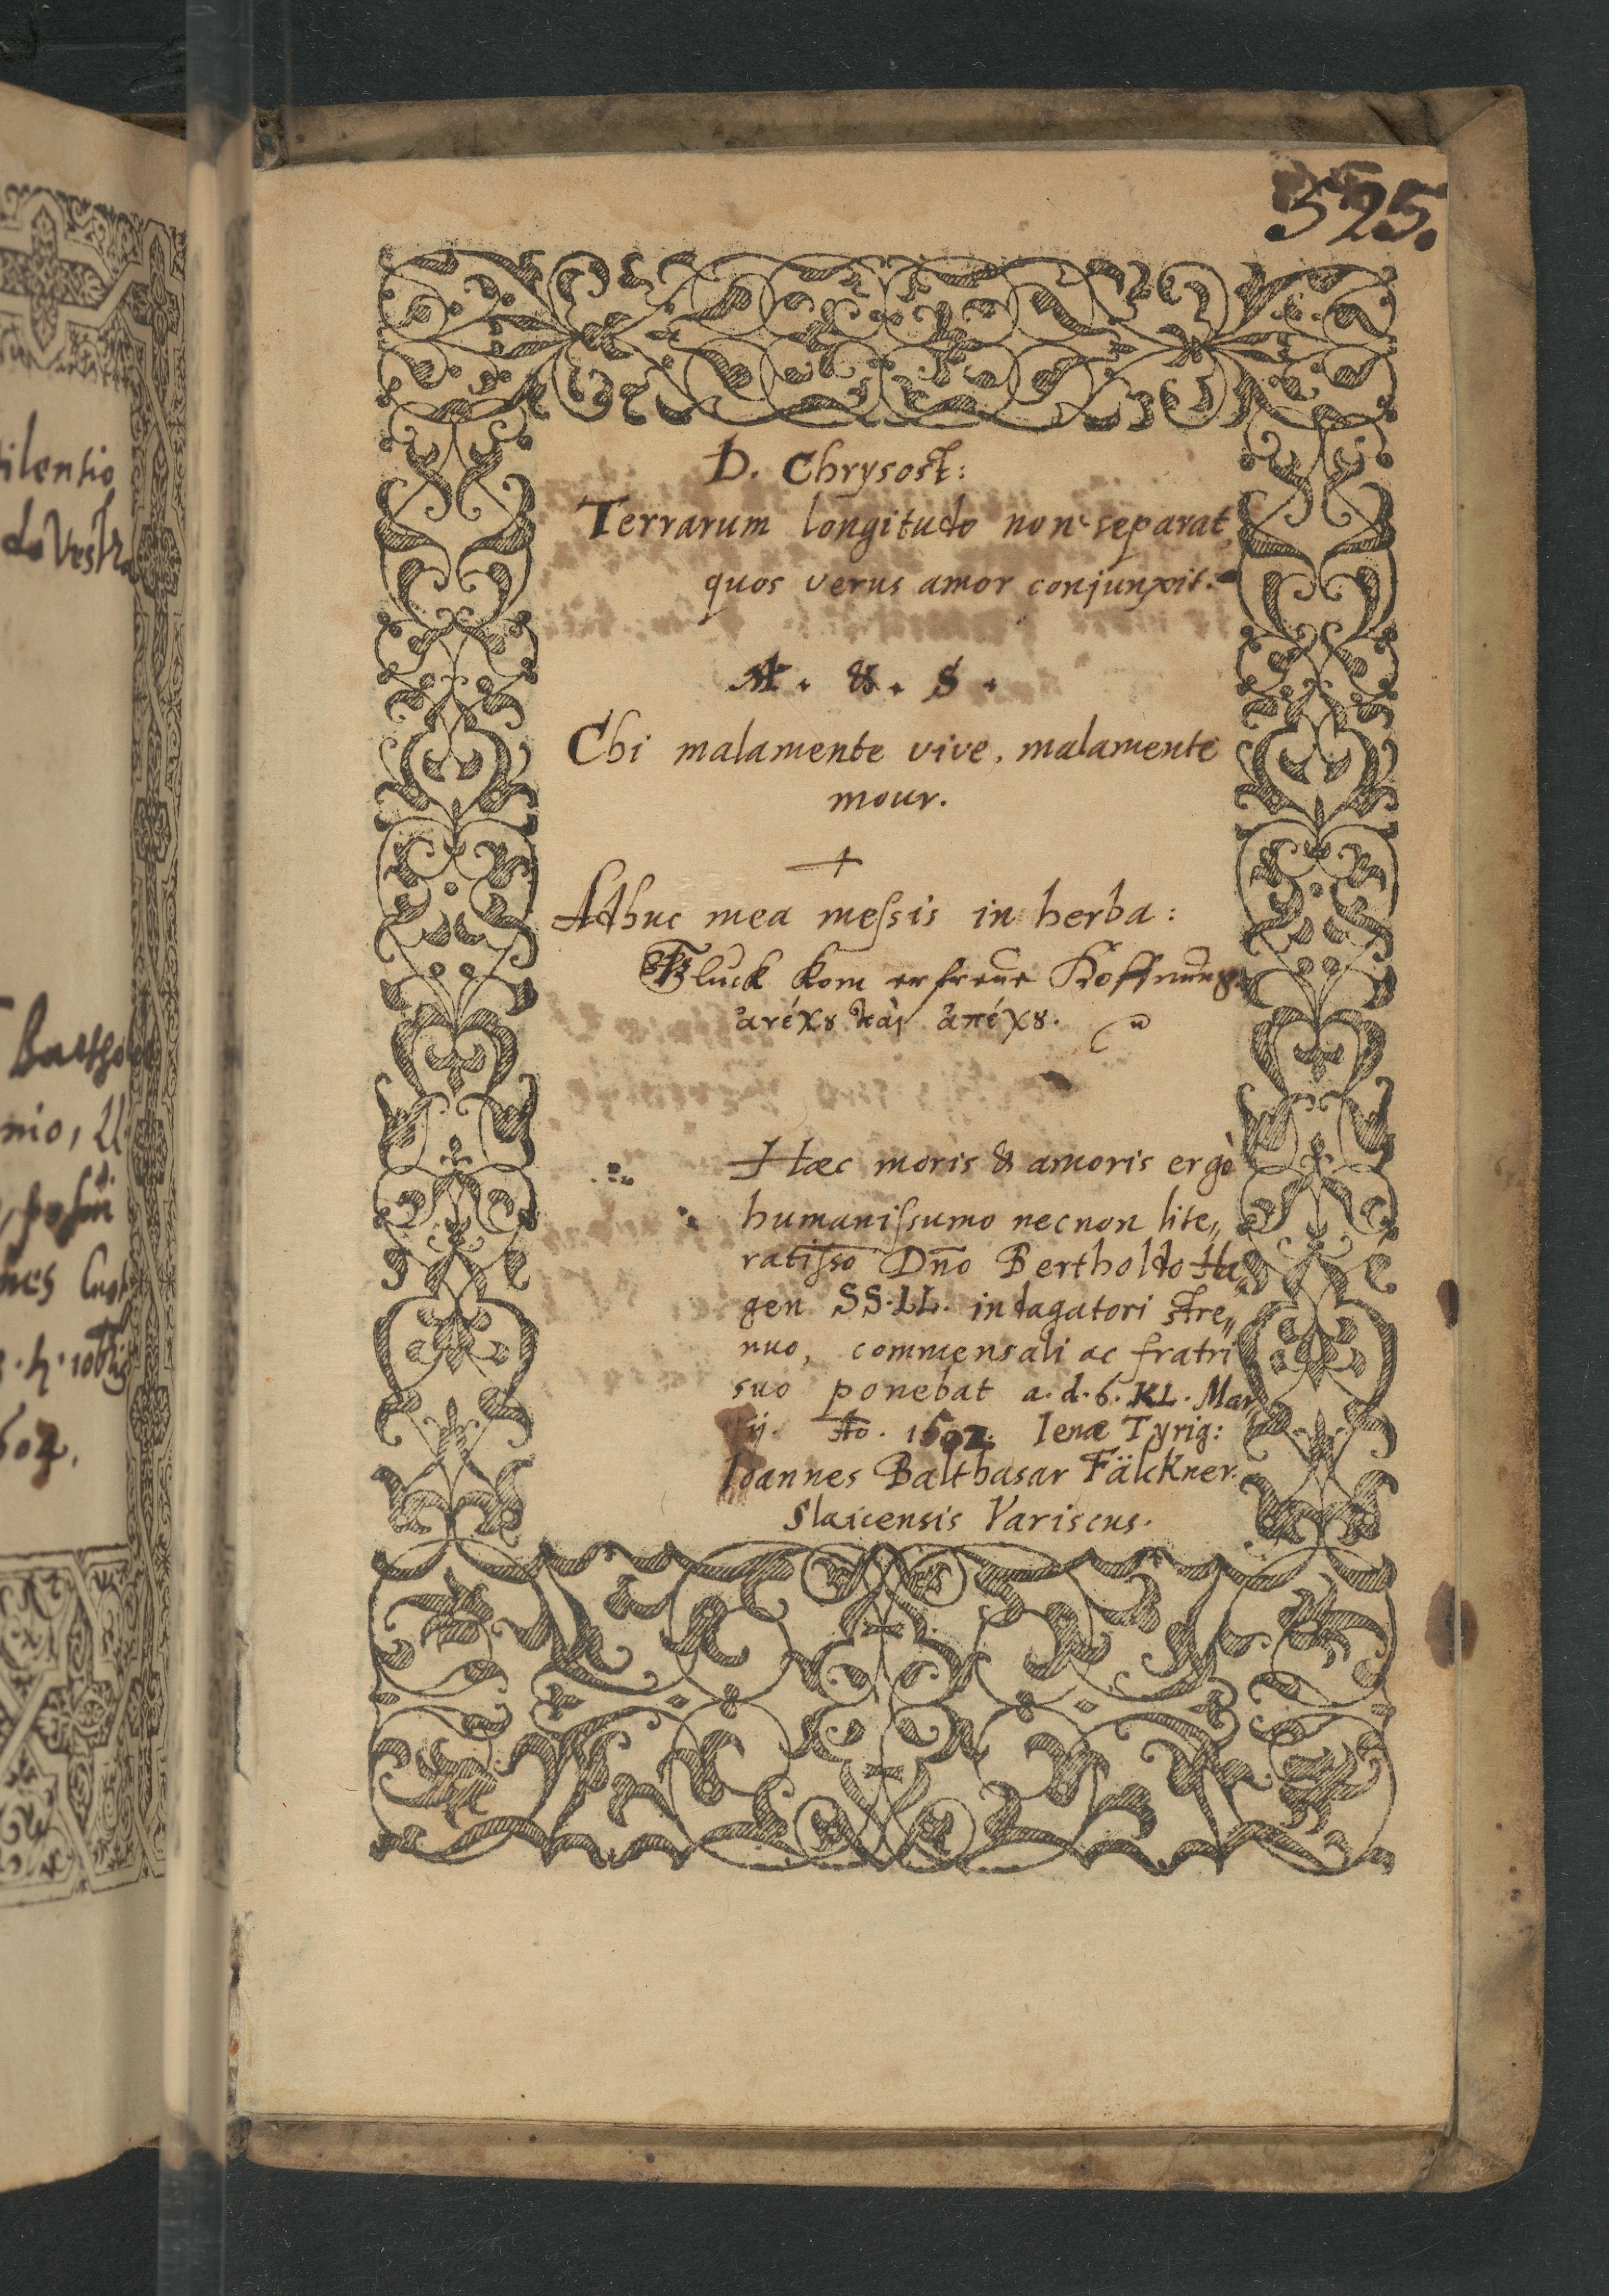 525.
D. Chrysost:
Terrarum longitudo non separat,
quos verus amor conjunxit.
A. & S.
Chi malamente vive, malamente
mour.
Adhuc mea meſsis in herba:
Glück kom erfreüe Hoffnüng.
ἀνέχȣ καὶ ἀπέχȣ.
Hæc moris & amoris ergò
humaniſsumo necnon lite„
ratiſso Dn̄o Bertholdo Ha„
gen SS.LL. indagatori stre„
nuo, commensali ac fratri
suo ponebat a.d.6.KL.Mar„
tij. Ao. 1602. Ienæ Tyrig:
Ioannes Balthasar Fälckner.
Slaicensis Variscus.
ilentio
nio,